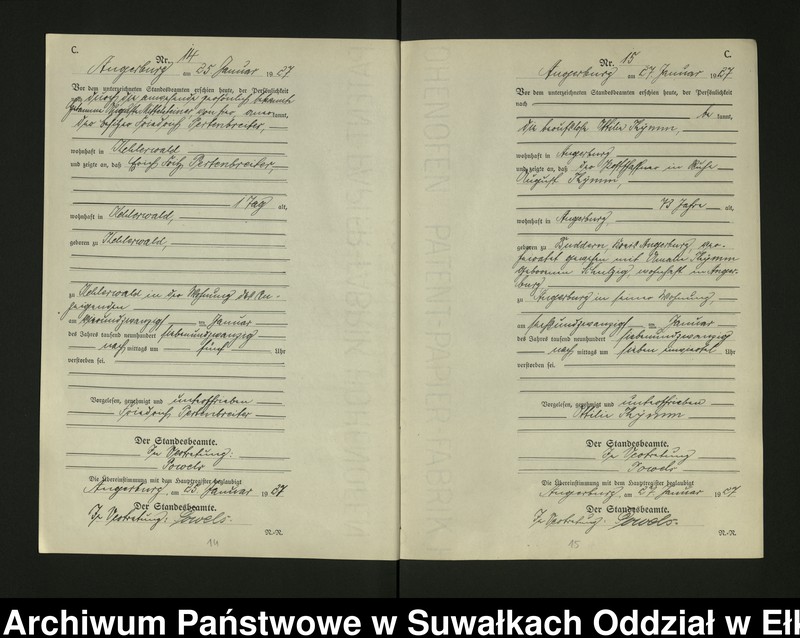 C.
Nr. 14
Angerburg am 25. Januar 1927
Vor dem unterzeichneten Standesbeamten erschien heute, der Persönlichkeit
nach durch die anwesende persönlich bekannte
kannt,
der Besitzer Friedrich Pertenbreiter,
wohnhaft in Kehlerwald
und zeigte an, daß Erich Fritz Pertenbreiter,
1 Tag alt,
wohnhaft in Kehlerwald,
geboren zu Kehlerwald,
zu Kehlerwald in der Wohnung des An-
zeigenden
am vierundzwanzigsten Januar
des Jahres tausend neunhundert siebenundzwanzig
nachmittags um fünf Uhr
verstorben sei.
Vorgelesen, genehmigt und unterschrieben
Friedrich Pertenbreiter
Der Standesbeamte.
In Vertretung:
Powels
Die Übereinstimmung mit dem Hauptregister beglaubigt
Angerburg, am 25. Januar 1927
Der Standesbeamte.
In Vertretung: Powels.
N.-N.
14
C.
Nr. 15
Angerburg am 27. Januar 1927
Vor dem unterzeichneten Standesbeamten erschien heute, der Persönlichkeit
nach
be kannt,
die berufslose Ottilie Kymm,
wohnhaft in Angerburg
und zeigte an, daß der Postschaffner in Ruhe
August Kymm,
73 Jahre alt,
wohnhaft in Angerburg,
geboren zu Buddern, Kreis Angerburg, ver-
heiratet gewesen mit Amalie Kymm
geborenen Schulzig, wohnhaft in Anger-
burg
zu Angerburg in seiner Wohnung
am sechsundzwanzigsten Januar
des Jahres tausend neunhundert siebenundzwanzig
nachmittags um sieben einviertel Uhr
verstorben sei.
Vorgelesen, genehmigt und unterschrieben
Ottilie Kymm
Der Standesbeamte.
In Vertretung
Powels
Die Übereinstimmung mit dem Hauptregister beglaubigt
Angerburg, am 27. Januar 1927
Der Standesbeamte.
In Vertretung: Powels.
N.-N.
15
Archiwum Państwowe w Suwałkach Oddział w Ełk